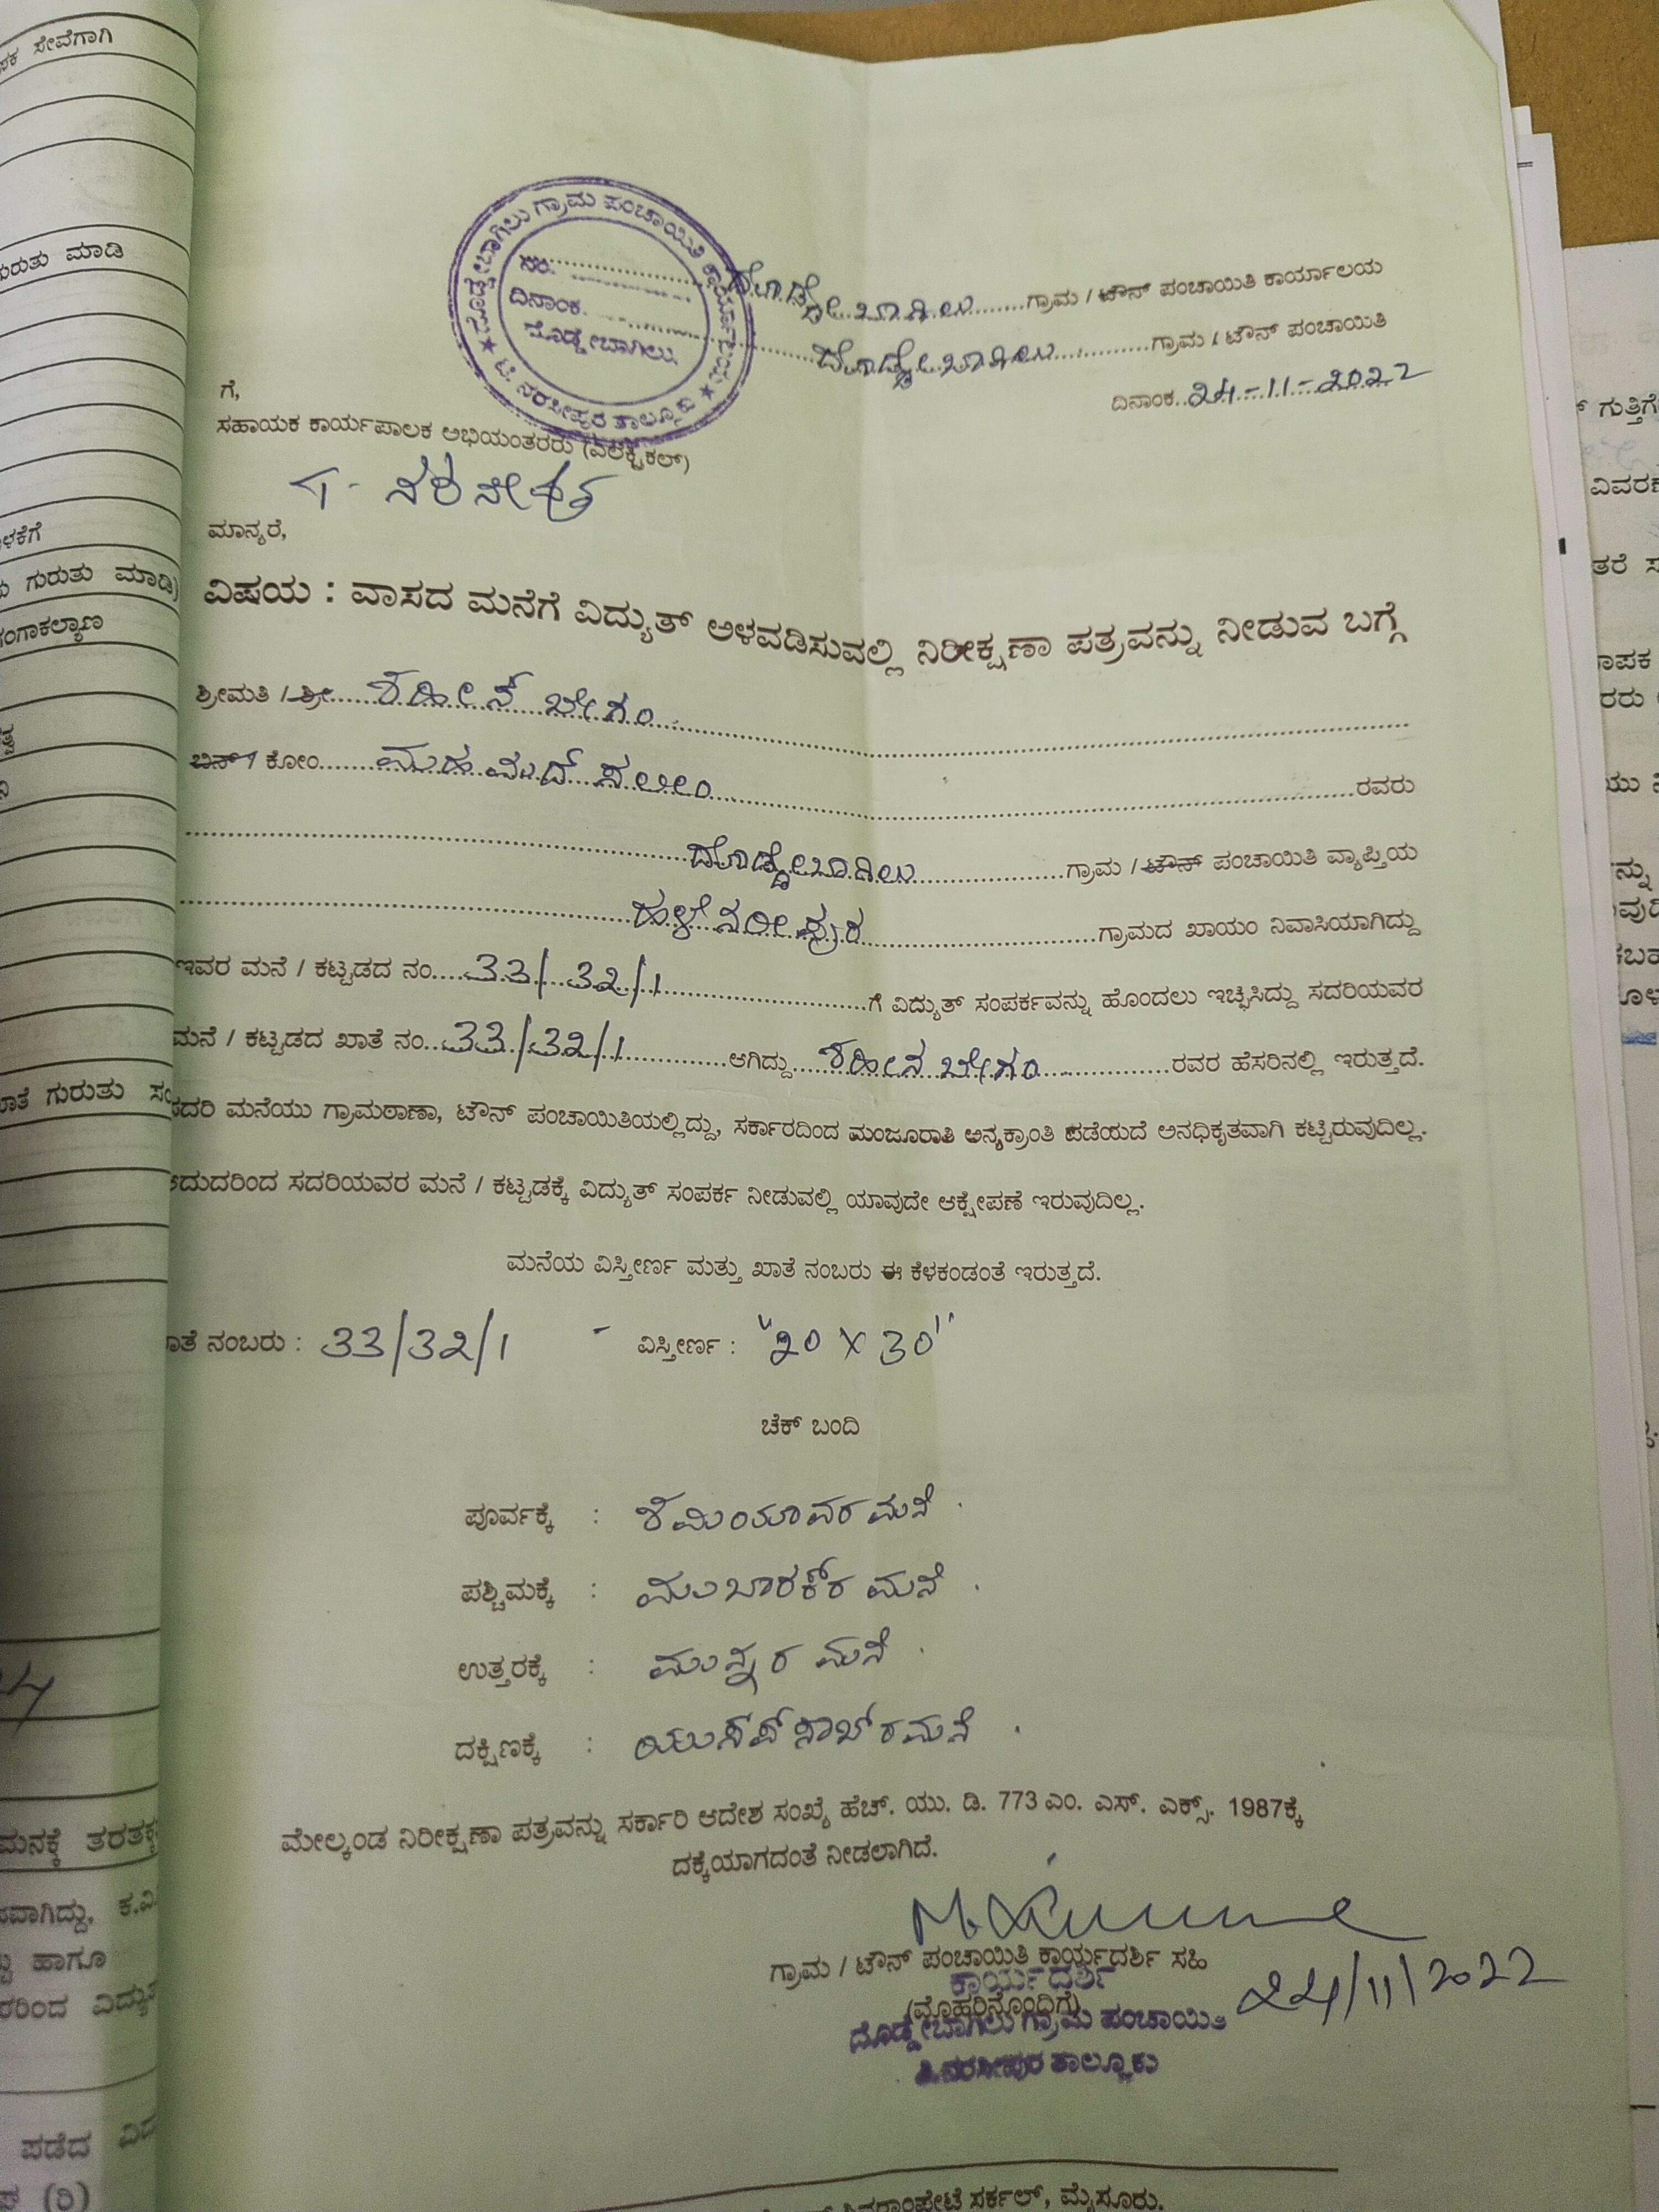 ದೊಡ್ಡೇಬಾಗಿಲು ಗ್ರಾಮ ಪಂಚಾಯಿತಿ ಕಾರ್ಯಾಲಯ
★ ಟಿ. ನರಸೀಪುರ ತಾಲ್ಲೂಕು ★
ನಂ.
ದಿನಾಂಕ.
ದೊಡ್ಡೇಬಾಗಿಲು
ದೊಡ್ಡೇಬಾಗಿಲು ಗ್ರಾಮ / ಟೌನ್ ಪಂಚಾಯಿತಿ ಕಾರ್ಯಾಲಯ
ದೊಡ್ಡೇಬಾಗಿಲು ಗ್ರಾಮ / ಟೌನ್ ಪಂಚಾಯಿತಿ
ದಿನಾಂಕ..24-11-2022
ಗೆ,
ಸಹಾಯಕ ಕಾರ್ಯಪಾಲಕ ಅಭಿಯಂತರರು (ಎಲೆಕ್ಟ್ರಿಕಲ್)
ಮಾನ್ಯರೆ,
ವಿಷಯ : ವಾಸದ ಮನೆಗೆ ವಿದ್ಯುತ್ ಅಳವಡಿಸುವಲ್ಲಿ ನಿರೀಕ್ಷಣಾ ಪತ್ರವನ್ನು ನೀಡುವ ಬಗ್ಗೆ
ಶ್ರೀಮತಿ / ಶ್ರೀ ಶಹೀನ್ ಬೇಗಂ
ಬಿನ್ / ಕೋಂ ಮುಹಮದ್ ಸಲೀಂ ರವರು
ದೊಡ್ಡೇಬಾಗಿಲು ಗ್ರಾಮ / ಟೌನ್ ಪಂಚಾಯಿತಿ ವ್ಯಾಪ್ತಿಯ
ಗ್ರಾಮದ ಖಾಯಂ ನಿವಾಸಿಯಾಗಿದ್ದು
ಇವರ ಮನೆ / ಕಟ್ಟಡದ ನಂ....33/32/1 ಗೆ ವಿದ್ಯುತ್ ಸಂಪರ್ಕವನ್ನು ಹೊಂದಲು ಇಚ್ಛಿಸಿದ್ದು ಸದರಿಯವರ
ಮನೆ / ಕಟ್ಟಡದ ಖಾತೆ ನಂ..33/32/1 ಆಗಿದ್ದು ಶಹೀನ ಬೇಗಂ ರವರ ಹೆಸರಿನಲ್ಲಿ ಇರುತ್ತದೆ.
ಸದರಿ ಮನೆಯು ಗ್ರಾಮಠಾಣಾ, ಟೌನ್ ಪಂಚಾಯಿತಿಯಲ್ಲಿದ್ದು, ಸರ್ಕಾರದಿಂದ ಮಂಜೂರಾತಿ ಅನ್ಯಕ್ರಾಂತಿ ಪಡೆಯದೆ ಅನಧಿಕೃತವಾಗಿ ಕಟ್ಟಿರುವುದಿಲ್ಲ.
ಆದುದರಿಂದ ಸದರಿಯವರ ಮನೆ / ಕಟ್ಟಡಕ್ಕೆ ವಿದ್ಯುತ್ ಸಂಪರ್ಕ ನೀಡುವಲ್ಲಿ ಯಾವುದೇ ಆಕ್ಷೇಪಣೆ ಇರುವುದಿಲ್ಲ.
ಮನೆಯ ವಿಸ್ತೀರ್ಣ ಮತ್ತು ಖಾತೆ ನಂಬರು ಈ ಕೆಳಕಂಡಂತೆ ಇರುತ್ತದೆ.
ಖಾತೆ ನಂಬರು : 33/32/1 - ವಿಸ್ತೀರ್ಣ : "20 X 30"
ಚೆಕ್ ಬಂದಿ
ಪೂರ್ವಕ್ಕೆ : ಮನೆ .
ಪಶ್ಚಿಮಕ್ಕೆ : ಮುಬಾರಕ್‌ರ ಮನೆ .
ಉತ್ತರಕ್ಕೆ : ಮುನ್ನರ ಮನೆ .
ದಕ್ಷಿಣಕ್ಕೆ : ಯುಸಫ್ ಸಾಬ್‌ರ ಮನೆ .
ಮೇಲ್ಕಂಡ ನಿರೀಕ್ಷಣಾ ಪತ್ರವನ್ನು ಸರ್ಕಾರಿ ಆದೇಶ ಸಂಖ್ಯೆ ಹೆಚ್. ಯು. ಡಿ. 773 ಎಂ. ಎಸ್. ಎಕ್ಸ್. 1987ಕ್ಕೆ
ದಕ್ಕೆಯಾಗದಂತೆ ನೀಡಲಾಗಿದೆ.
ಗ್ರಾಮ / ಟೌನ್ ಪಂಚಾಯಿತಿ ಕಾರ್ಯದರ್ಶಿ ಸಹಿ
ಕಾರ್ಯದರ್ಶಿ
(ಮೊಹರಿನೊಂದಿಗೆ) 24/11/2022
ದೊಡ್ಡೇಬಾಗಿಲು ಗ್ರಾಮ ಪಂಚಾಯಿತಿ
ಟಿ.ನರಸೀಪುರ ತಾಲ್ಲೂಕು
ಸರ್ಕಲ್, ಮೈಸೂರು.
ಸೇವೆಗಾಗಿ
ಗುರುತು ಮಾಡಿ
ಗುರುತು ಮಾಡಿ)
ಗಂಗಾಕಲ್ಯಾಣ
ಗುರುತು
ಹಾಗೂ
ಪಡೆದ
(ರಿ)